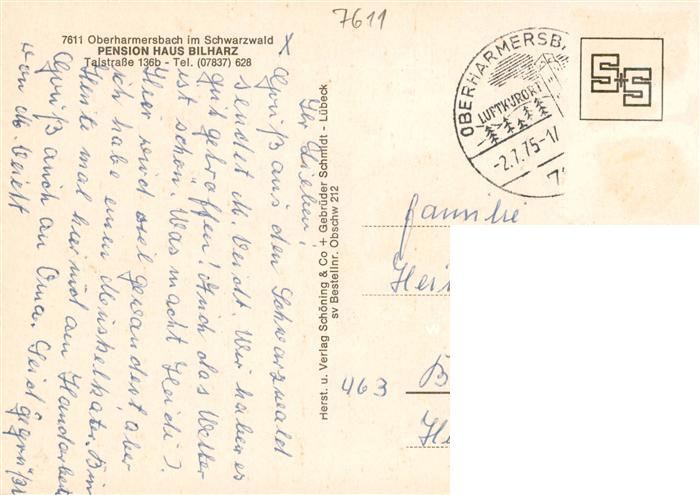 7611
7611 Oberharmersbach im Schwarzwald
PENSION HAUS BILHARZ
Talstraße 136b - Tel. (07837) 628
Ihr Lieben!
Gruß aus den Schwarzwald
sendet M. Veidt. Wir haben es
gut getroffen! Auch das Wetter
ist schön. Was macht Heidi?
Hier wird viel gewandert aber
ich habe einen Muskelkater. Bin
Heute mal hier mit am Handarbeit
Gruß auch an Oma. Seid gegrüßt
von M. Veidt
Herst. u. Verlag Schöning & Co + Gebrüder Schmidt - Lübeck
sv Bestellnr. Obschw 212
OBERHARMERSB
LUFTKURORT
-2.7.75-1
S+S
Familie
463